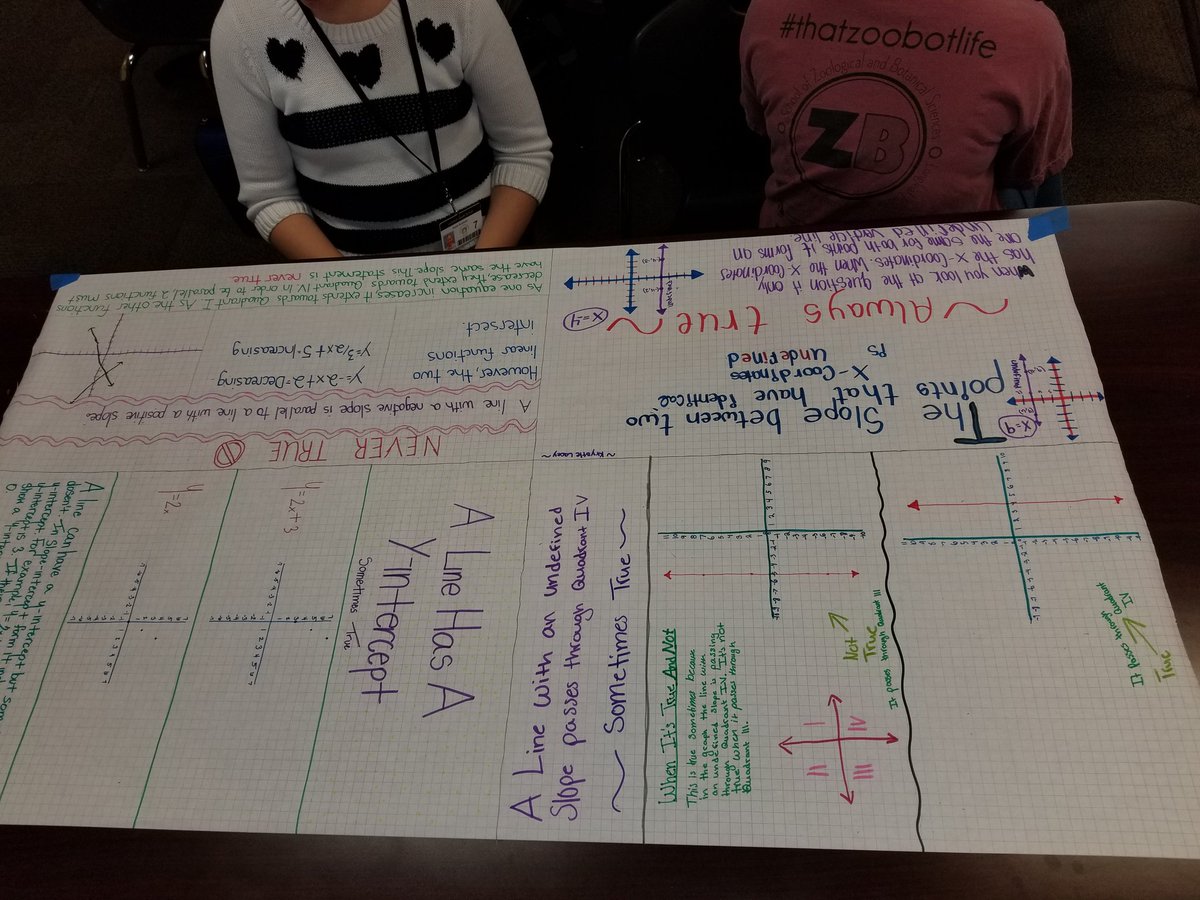 #thatzoobotlife
School of Zoological and Botanical Sciences
ZB
7
When you look at the question it only
has the x-coordinates. When the x coordinates
are the same for both points it forms an
undefined verticle line.
~ Always true ~
x=-4
The Slope between two
points that have identical
X-Coordinates
is
undefined
x=-9
As one equation increases it extends towards Quadrant I. As the other functions
decrease, they extend towards Quadrant IV. In order to be parallel, 2 functions must
have the same slope. This statement is never true
However, the two
linear functions
intersect.
y=-2x+2=Decreasing
y=3/2x+5=Increasing
A line with a negative slope is parallel to a line with a positive slope.
NEVER TRUE
A Line Has A
Y-Intercept
Sometimes True
y=2x+3
y=2x
A line can have a y-intercept but som
doesnt. In slope-intercept form it
y-intercept. For example, y=2x
y-intercept is 3. If there
show a y-inter
0
A Line with an undefined
Slope passes through Quadrant IV
~ Sometimes True ~
When It's True And Not
This is true sometimes because
in the graph the line with
an undefined slope is passing
through Quadrant IV. It's not
true when it passes through
Quadrant III.
Not
True
It passes through Quadrant III
II
I
III
IV
It passes through Quadrant
IV
True